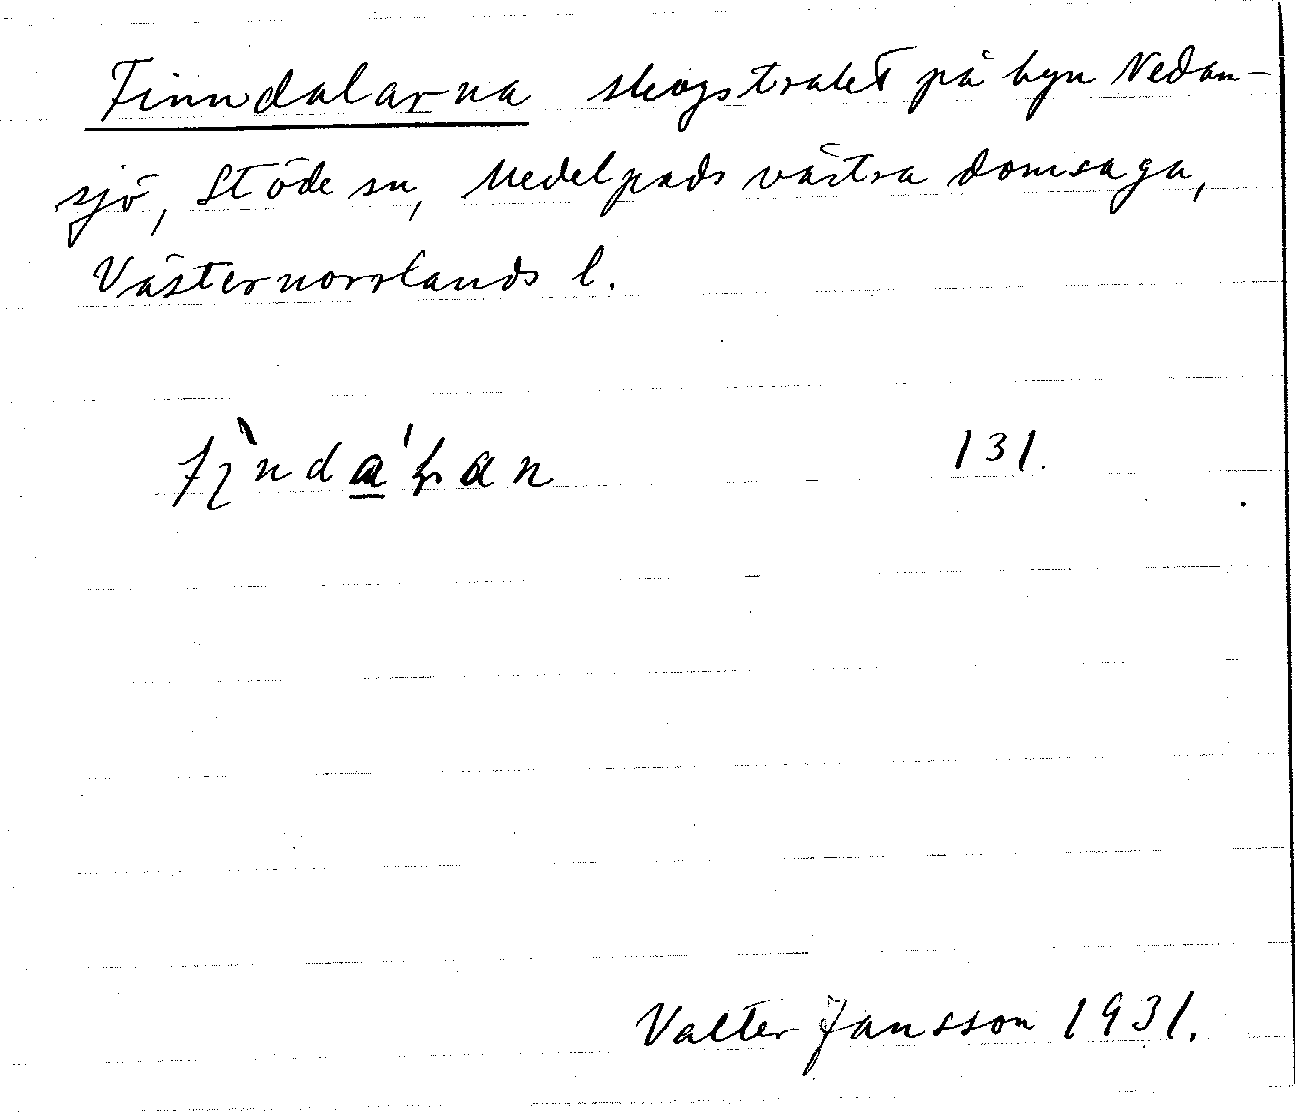 Finndalarna skogstrakt på byn Nedan-
sjö, Stöde sn, Medelpads västra domsaga,
Västernorrlands l.
131.
Valter Jansson 1931.